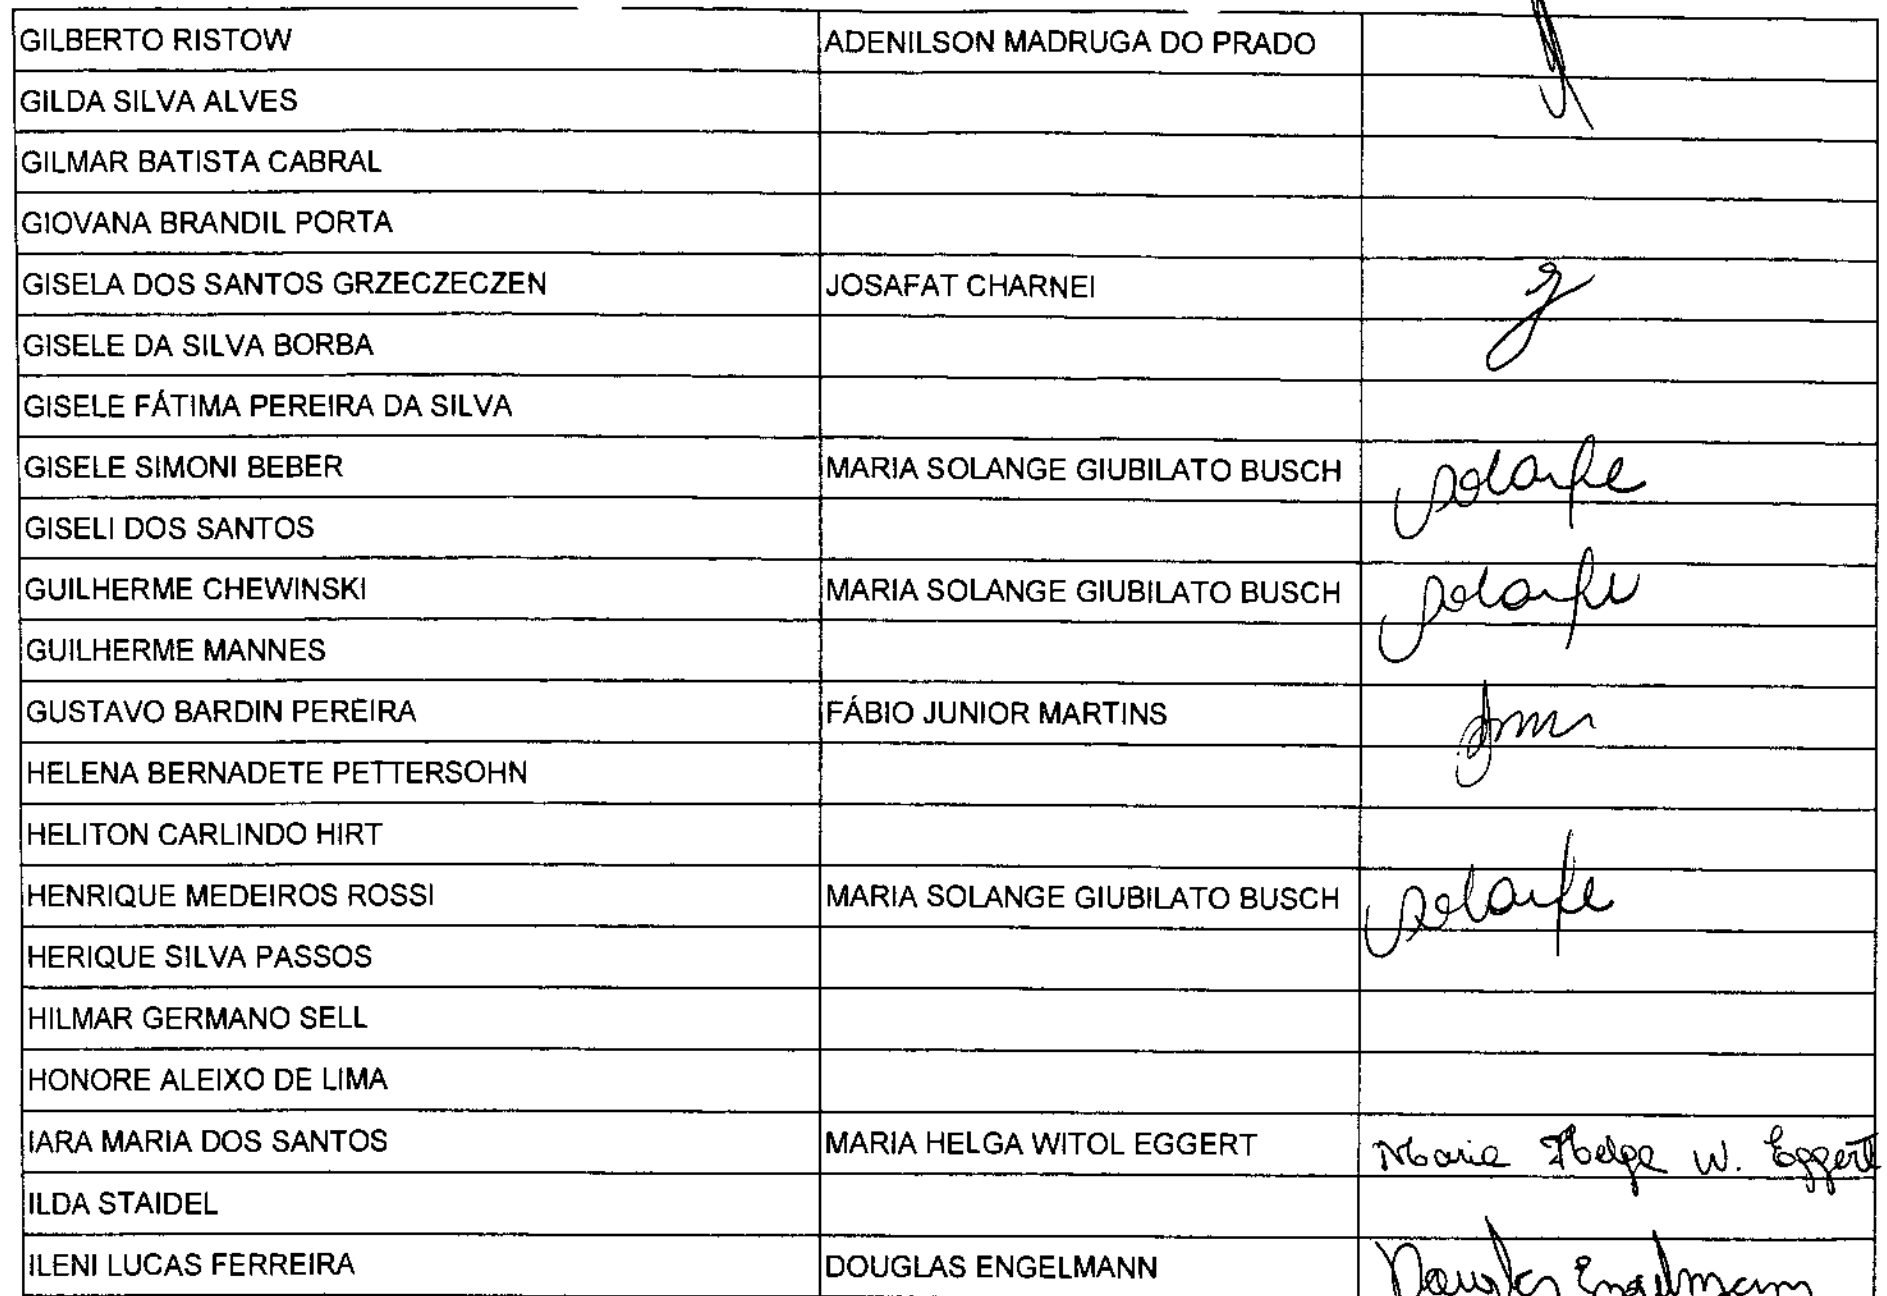 GILBERTO RISTOW ADENILSON MADRUGA DO PRADO
GILDA SILVA ALVES
GILMAR BATISTA CABRAL
GIOVANA BRANDIL PORTA
GISELA DOS SANTOS GRZECZECZEN JOSAFAT CHARNEI
GISELE DA SILVA BORBA
GISELE FÁTIMA PEREIRA DA SILVA
GISELE SIMONI BEBER MARIA SOLANGE GIUBILATO BUSCH Solange
GISELI DOS SANTOS
GUILHERME CHEWINSKI MARIA SOLANGE GIUBILATO BUSCH Solange
GUILHERME MANNES
GUSTAVO BARDIN PEREIRA FÁBIO JUNIOR MARTINS
HELENA BERNADETE PETTERSOHN
HELITON CARLINDO HIRT
HENRIQUE MEDEIROS ROSSI MARIA SOLANGE GIUBILATO BUSCH Solange
HERIQUE SILVA PASSOS
HILMAR GERMANO SELL
HONORE ALEIXO DE LIMA
IARA MARIA DOS SANTOS MARIA HELGA WITOL EGGERT Maria Helga W. Eggert
ILDA STAIDEL
ILENI LUCAS FERREIRA DOUGLAS ENGELMANN Douglas Engelmann